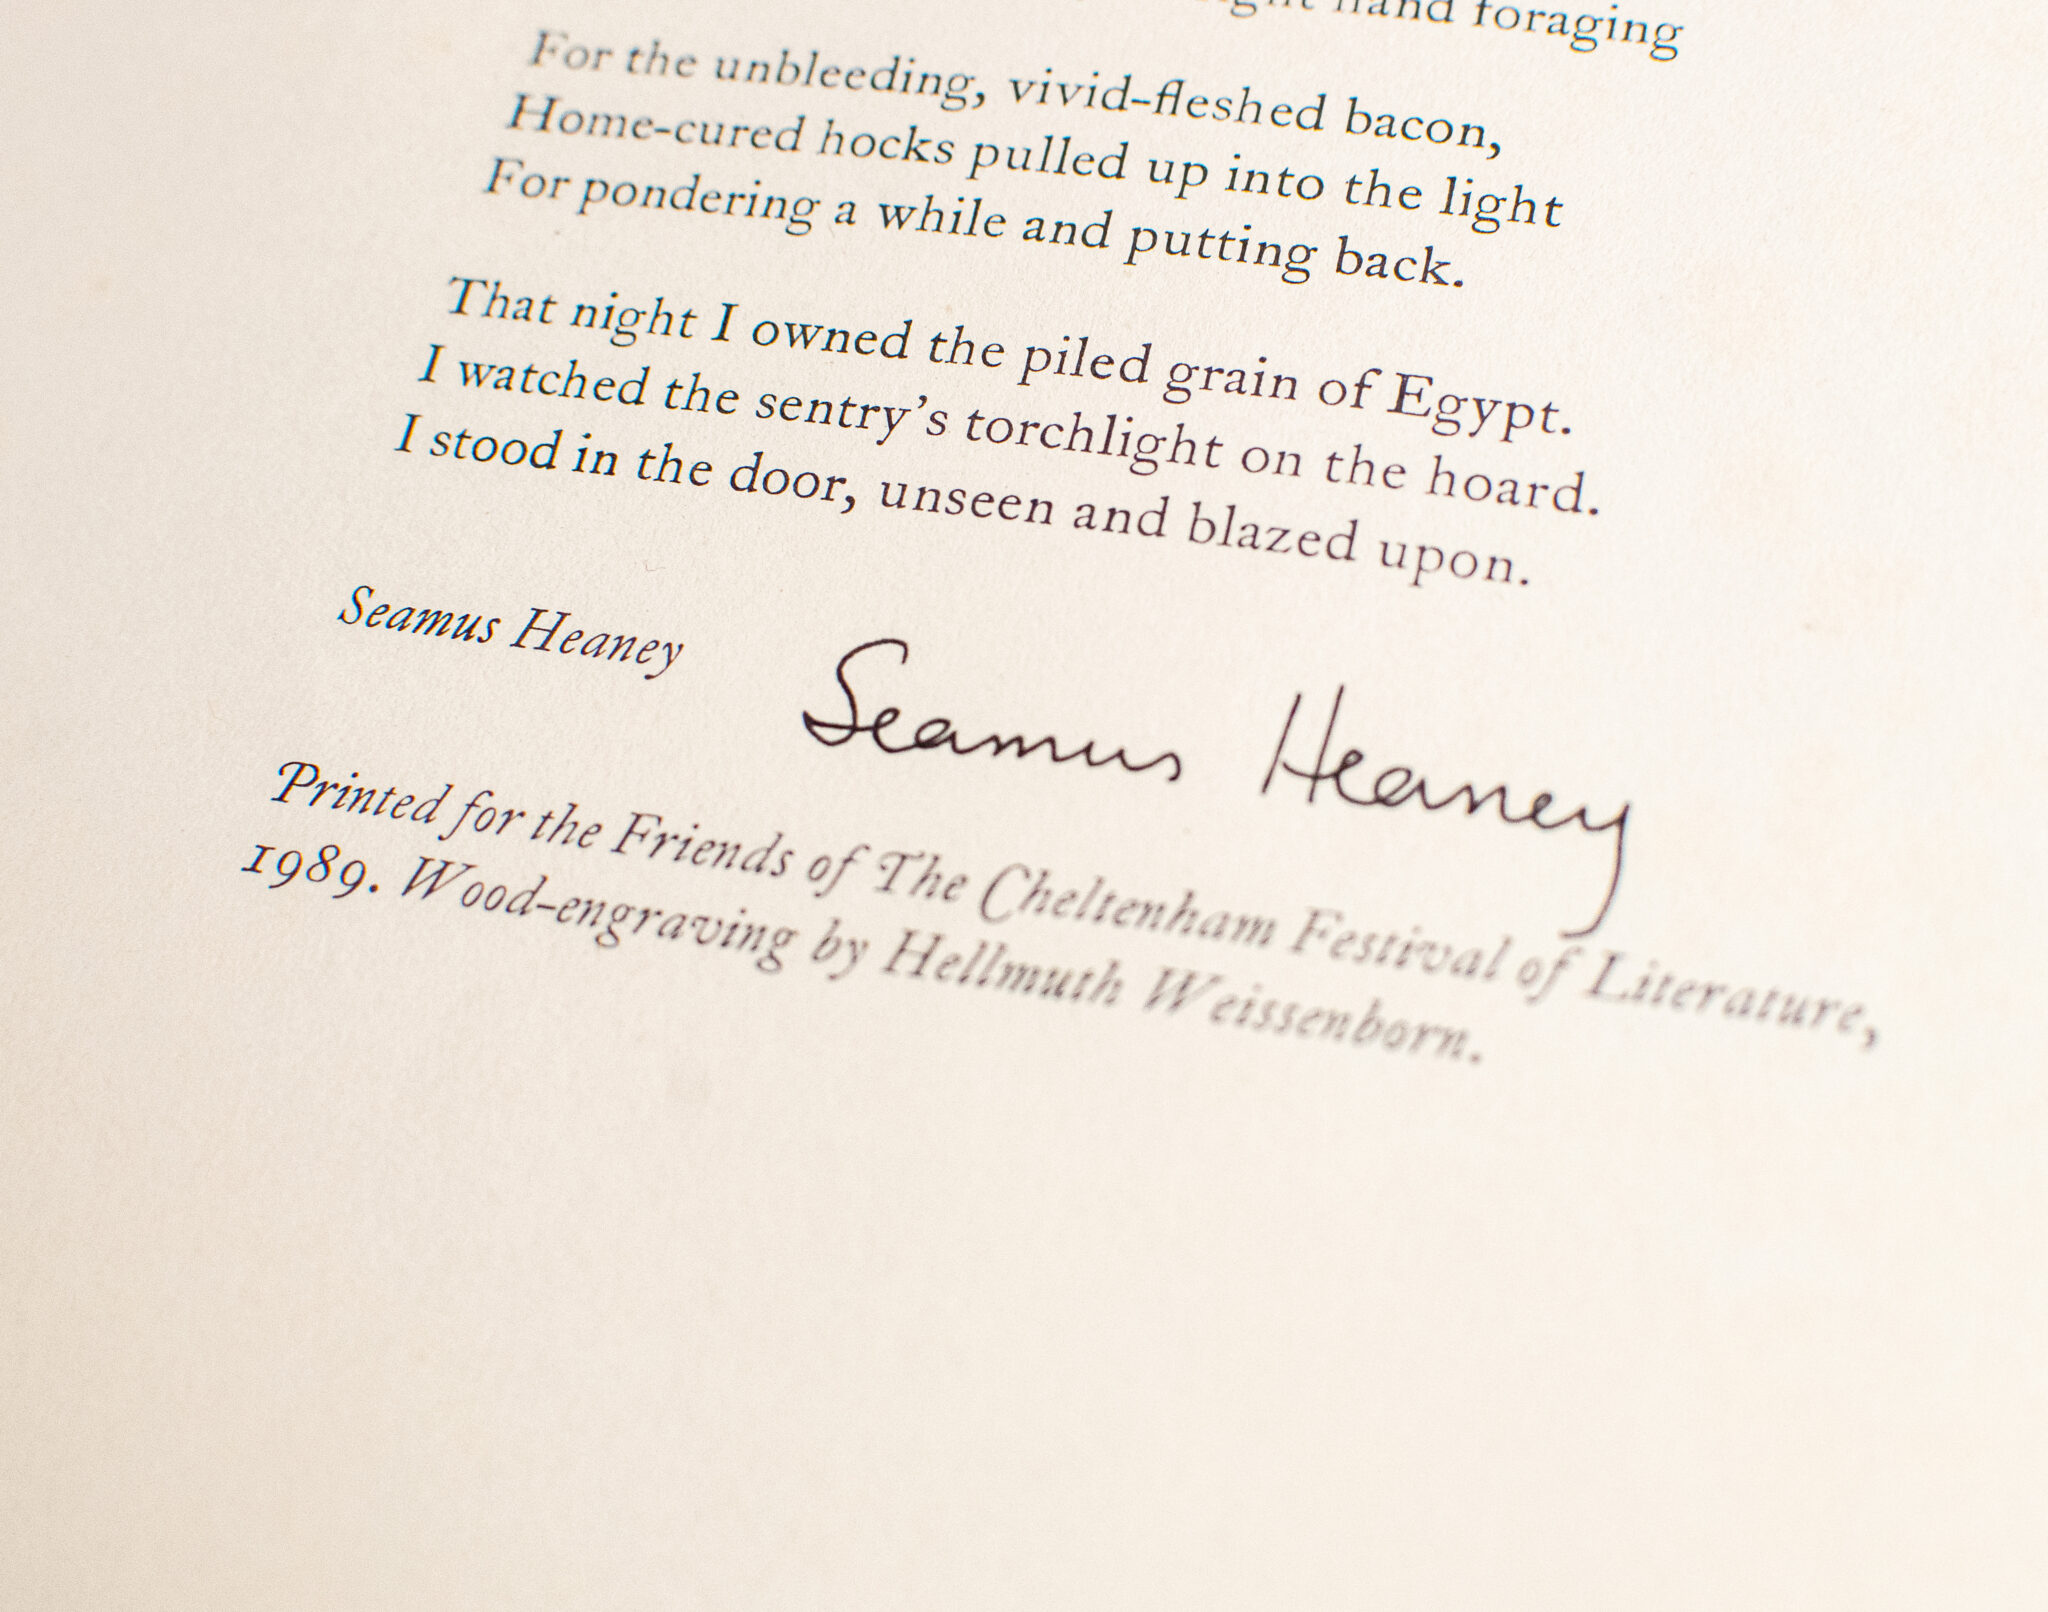 hand foraging
For the unbleeding, vivid-fleshed bacon,
Home-cured hocks pulled up into the light
For pondering a while and putting back.
That night I owned the piled grain of Egypt.
I watched the sentry's torchlight on the hoard.
I stood in the door, unseen and blazed upon.
Seamus Heaney
Seamus Heaney
Printed for the Friends of The Cheltenham Festival of Literature,
1989. Wood-engraving by Hellmuth Weissenborn.